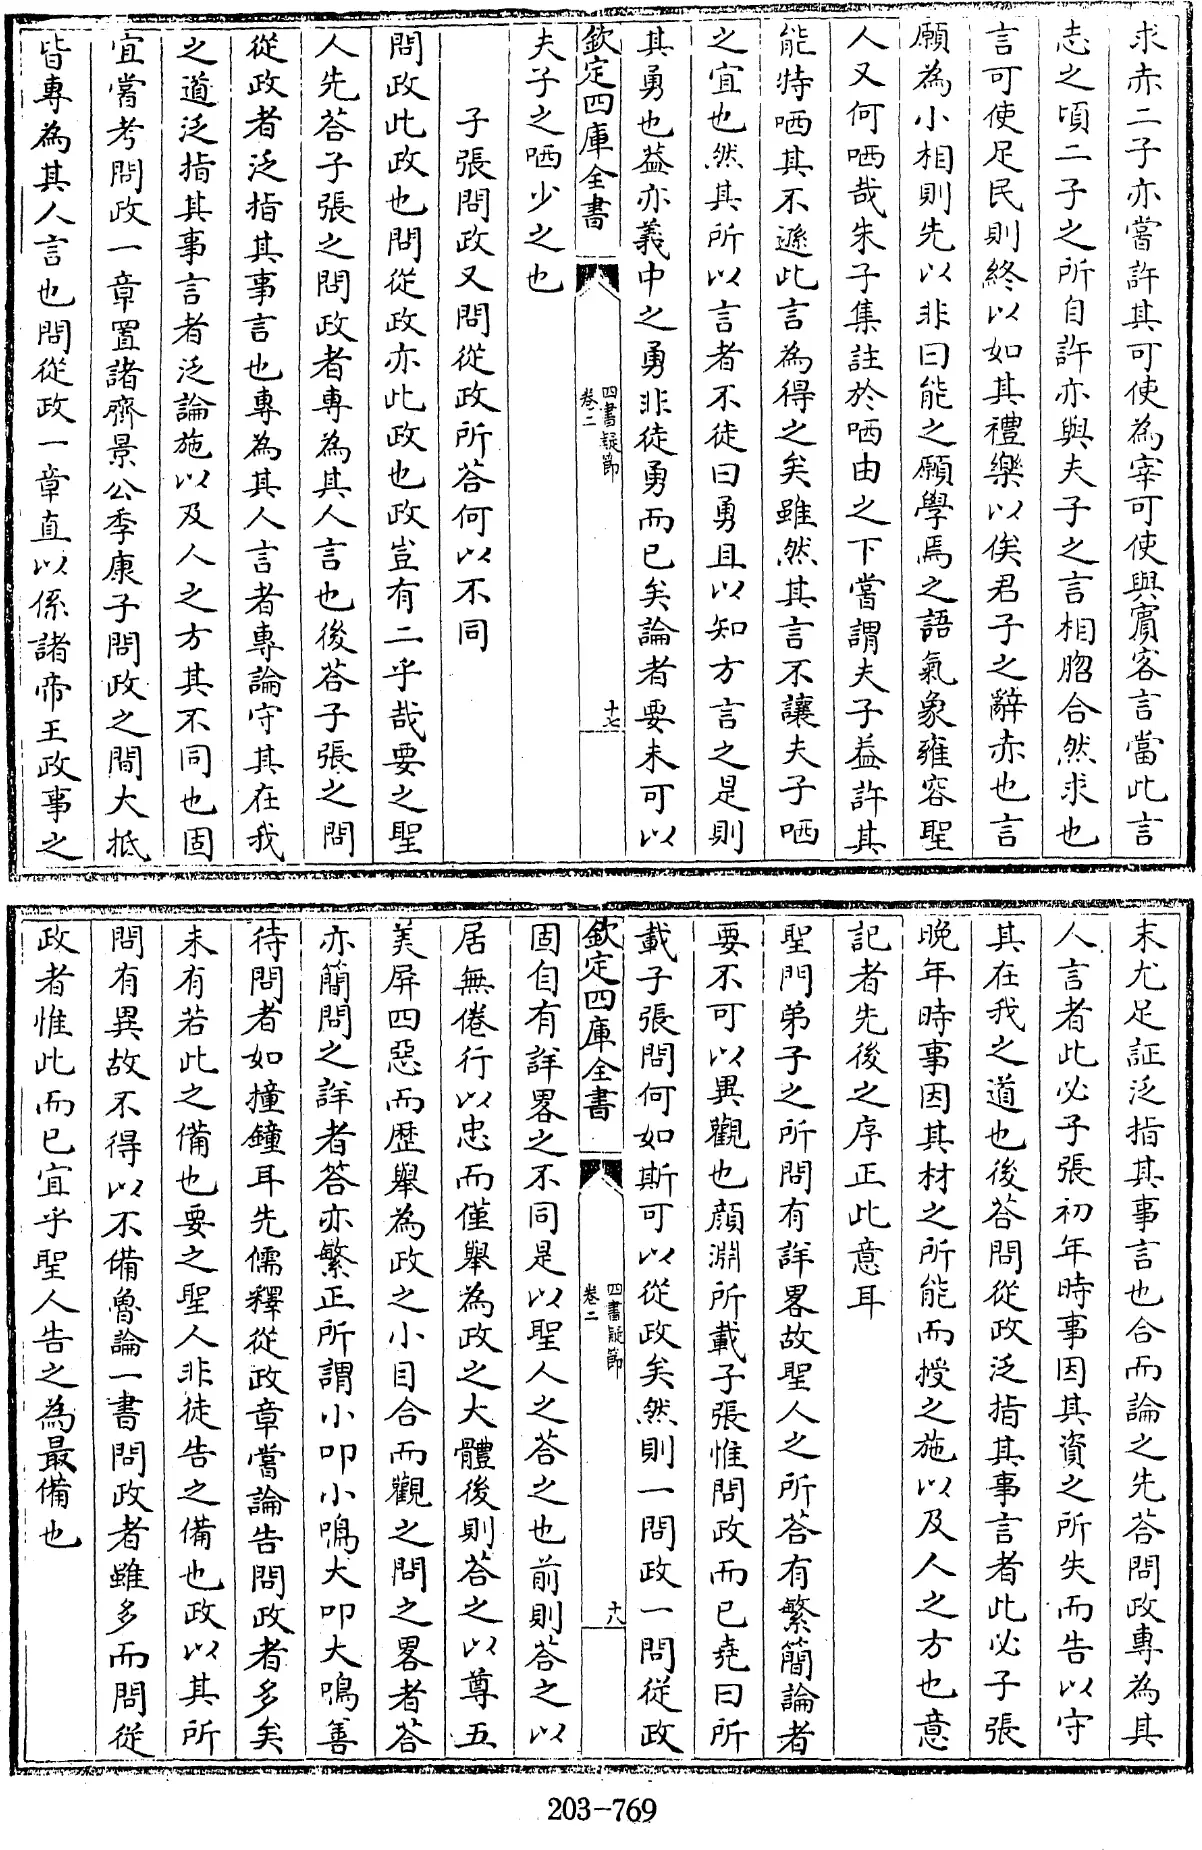 求赤二子亦嘗許其可使為宰可使與賓客言當此言
志之頃二子之所自許亦與夫子之言相脗合然求也
言可使足民則終以如其禮樂以俟君子之辭赤也言
願為小相則先以非曰能之願學焉之語氣象雍容聖
人又何哂哉朱子集註於哂由之下嘗謂夫子葢許其
能特哂其不遜此言為得之矣雖然其言不讓夫子哂
之宜也然其所以言者不徒曰勇且以知方言之是則
其勇也葢亦義中之勇非徒勇而已矣論者要未可以
欽定四庫全書
四書疑節
卷二
十七
夫子之哂少之也
子張問政又問從政所答何以不同
問政此政也問從政亦此政也政豈有二乎哉要之聖
人先答子張之問政者專為其人言也後答子張之問
從政者泛指其事言也專為其人言者專論守其在我
之道泛指其事言者泛論施以及人之方其不同也固
宜嘗考問政一章置諸齊景公季康子問政之間大抵
皆專為其人言也問從政一章直以係諸帝王政事之
末尤足証泛指其事言也合而論之先答問政專為其
人言者此必子張初年時事因其資之所失而告以守
其在我之道也後答問從政泛指其事言者此必子張
晚年時事因其材之所能而授之施以及人之方也意
記者先後之序正此意耳
聖門弟子之所問有詳畧故聖人之所答有繁簡論者
要不可以異觀也顔淵所載子張惟問政而已堯曰所
載子張問何如斯可以從政矣然則一問政一問從政
欽定四庫全書
四書疑節
卷二
十八
固自有詳畧之不同是以聖人之答之也前則答之以
居無倦行以忠而僅舉為政之大體後則答之以尊五
美屏四惡而歴舉為政之小目合而觀之問之畧者答
亦簡問之詳者答亦繁正所謂小叩小鳴大叩大鳴善
待問者如撞鐘耳先儒釋從政章嘗論告問政者多矣
未有若此之備也要之聖人非徒告之備也政以其所
問有異故不得以不備魯論一書問政者雖多而問從
政者惟此而已宜乎聖人告之為最備也
203-769